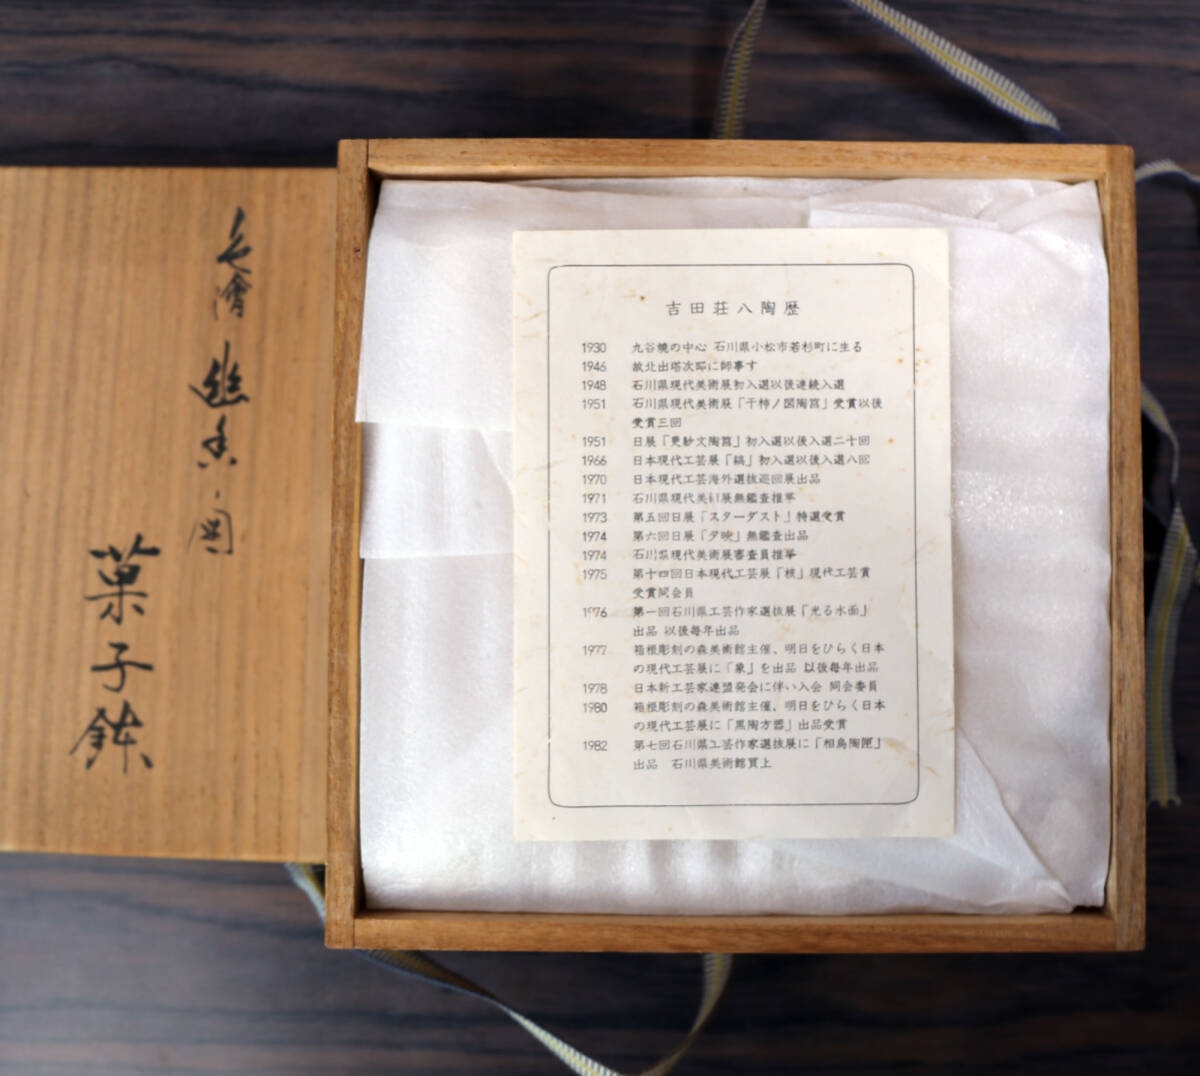 吉田荘八陶歴
1930 九谷焼の中心 石川県小松市若杉町に生る
1946 故北出塔次郎に師事す
1948 石川県現代美術展初入選以後連続入選
1951 石川県現代美術展「干柿ノ図陶筥」受賞以後
受賞三回
1951 日展「更紗文陶筥」初入選以後入選二十回
1966 日本現代工芸展「鎬」初入選以後入選八回
1970 日本現代工芸海外選抜巡回展出品
1971 石川県現代美術展無鑑査推挙
1973 第五回日展「スターダスト」特選受賞
1974 第六回日展「夕映」無鑑査出品
1974 石川県現代美術展審査員推挙
1975 第十四回日本現代工芸展「核」現代工芸賞
受賞同会員
1976 第一回石川県工芸作家選抜展「光る水面」
出品 以後毎年出品
1977 箱根彫刻の森美術館主催、明日をひらく日本
の現代工芸展に「象」を出品 以後毎年出品
1978 日本新工芸家連盟発会に伴い入会 同会委員
1980 箱根彫刻の森美術館主催、明日をひらく日本
の現代工芸展に「黒陶方器」出品受賞
1982 第七回石川県工芸作家選抜展に「相鳥陶匣」
出品 石川県美術館買上
色繪
図
菓子鉢